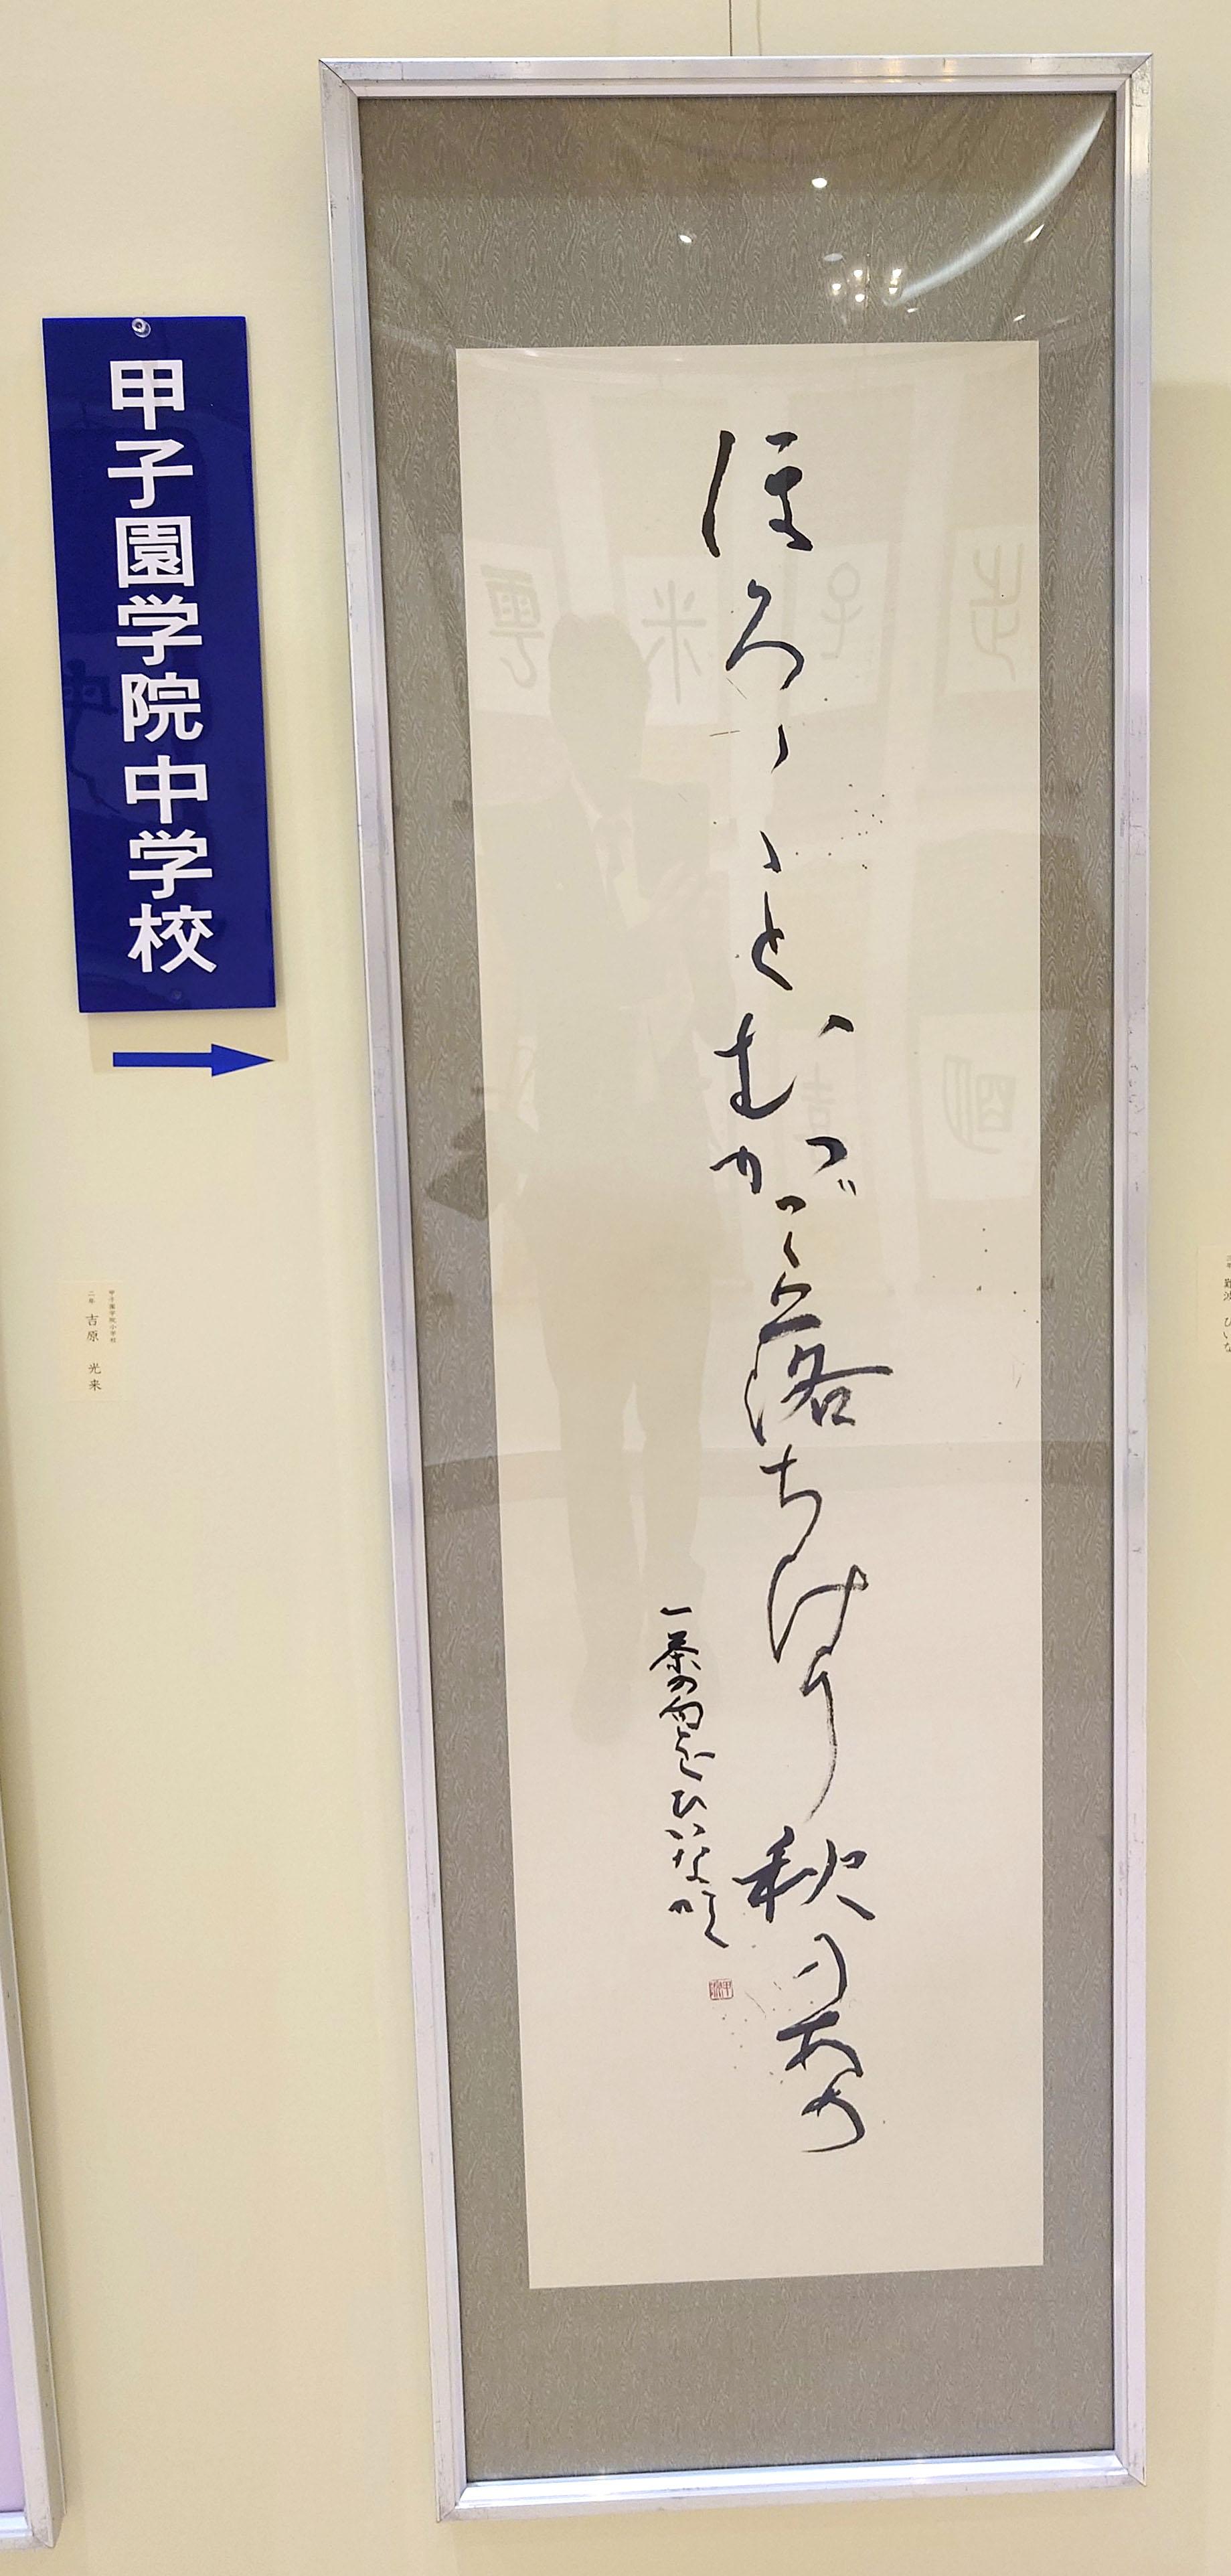 甲子園学院中学校
ほろゝゝとむかご落ちけり秋のあめ
一茶の句をひいなかく
甲子園学院小学校
二年 吉原 光来
難波 ひいな